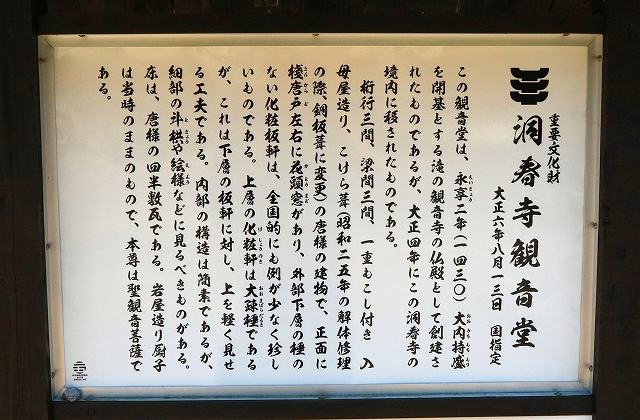 重要文化財
洞春寺観音堂
大正六年八月一三日　国指定
この観音堂は、永享二年(一四三〇)大内持盛
を開基とする滝の観音寺の仏殿として創建さ
れたものであるが、大正四年にこの洞春寺の
境内に移されたものである。
桁行三間、梁間三間、一重もこし付き　入
母屋造り、こけら葺(昭和二五年の解体修理
の際、銅板葺に変更)の唐様の建物で、正面に
棧唐戸左右に花頭窓があり、外部下層の種の
ない化粧板軒は、全国的にも例が少なく珍し
いものである。上層の化粧軒は大疎種である
が、これは下層の板軒に対し、上を軽く見せ
る工夫である。内部の構造は簡素であるが、
細部の斗栱や絵様などに見るべきものがある。
床は、唐様の四半敷瓦である。岩屋造り厨子
は当時のままのもので、本尊は聖観音菩薩で
ある。